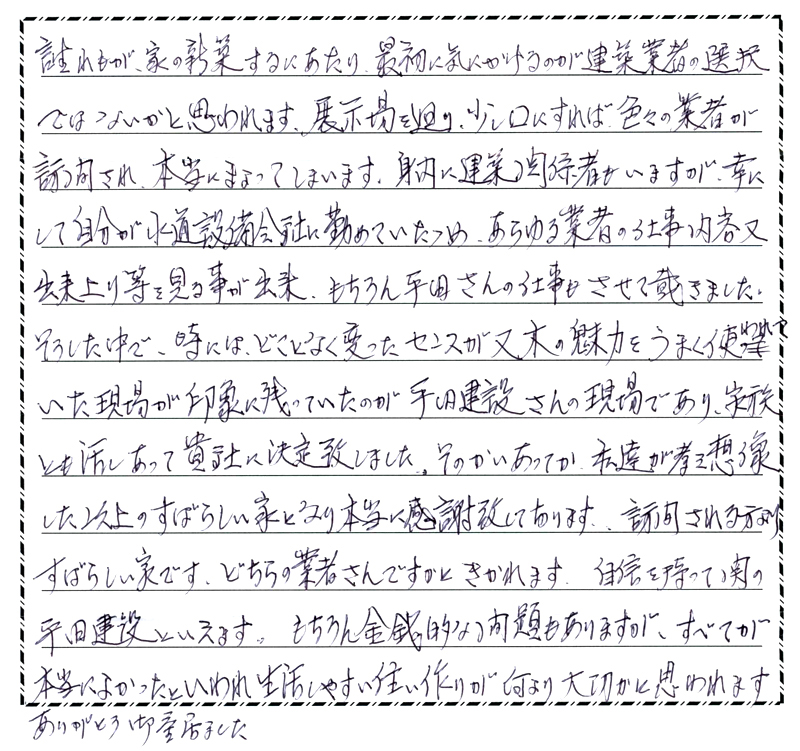 誰れもが、家の新築するにあたり、最初に気にかけるのが建築業者の選択
ではないかと思われます。展示場を廻り、少し口にすれば、色々の業者が
訪問され、本当にまよってしまいます。身内に建築関係者もいますが、幸に
して自分が水道設備会社に勤めていたため、あらゆる業者の仕事内容又
出来上り等を見る事が出来、もちろん平田さんの仕事もさせて戴きました。
そうした中で、時には、どことなく変ったセンスが又木の魅力をうまく使われて
いた現場が印象に残っていたのが平田建設さんの現場であり、家族
とも話しあって貴社に決定致しました。そのかいあってか、私達が考え想像
した以上のすばらしい家となり本当に感謝致しております。訪問される方より
すばらしい家です、どちらの業者さんですかときかれます。自信を持って
平田建設といえます。もちろん金銭的な問題もありますが、すべてが
本当によかったといわれ生活しやすい住い作りが何より大切かと思われます
ありがとう御座居ました